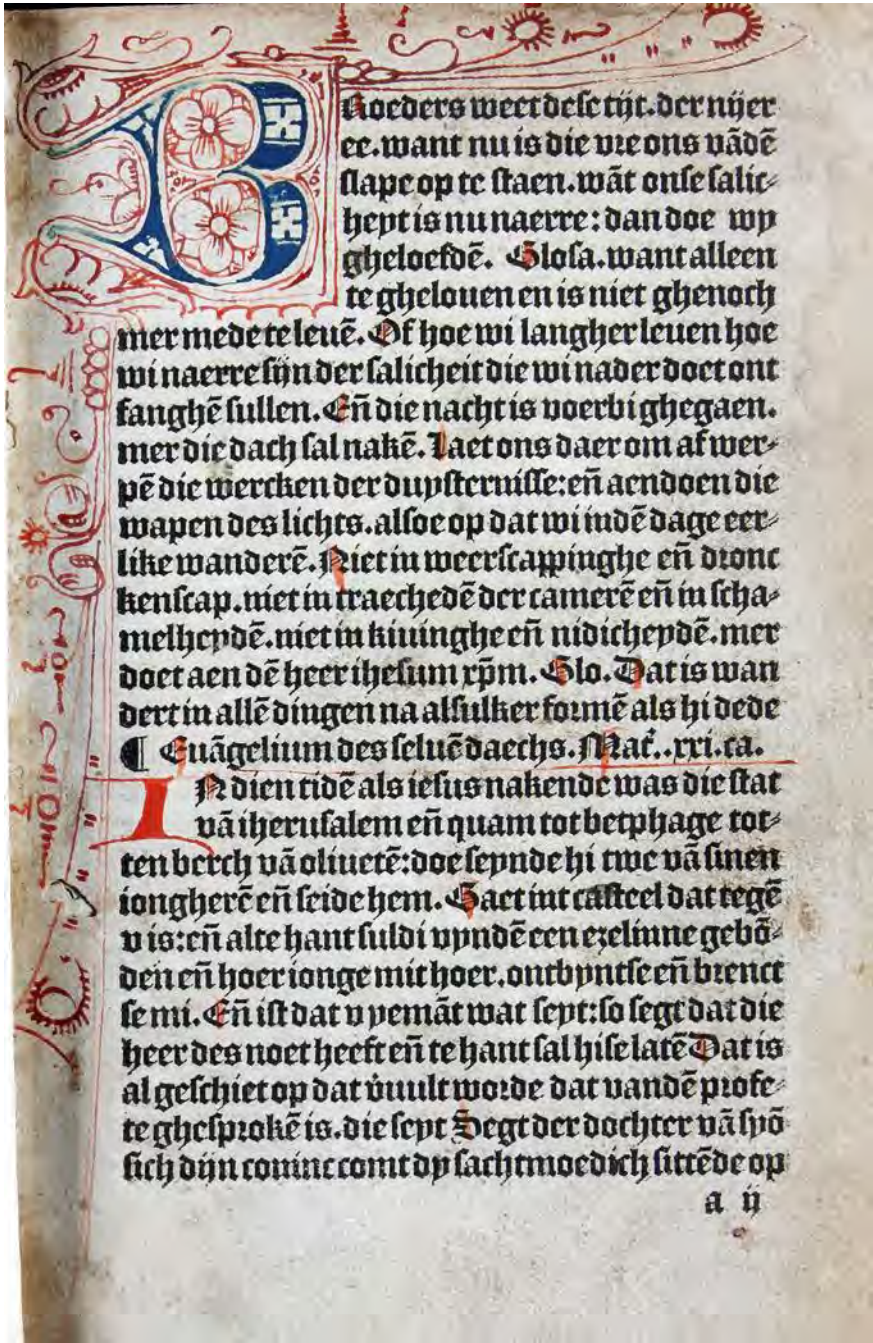 BRoeders weet dese tijt. der nijer
ee. want nu is die vre ons vādē
slape op te staen. wāt onse salic⸗
heyt is nu naerre: dan doe wy
gheloefdē. Glosa. want alleen
te ghelouen en is niet ghenoch
mer mede te leuē. Of hoe wi langher leuen hoe
wi naerre sijn der salicheit die wi nader doet ont
fanghē sullen. Eñ die nacht is voerbi ghegaen.
mer die dach sal nakē. Laet ons daer om af wer⸗
pē die wercken der duysternisse: eñ aendoen die
wapen des lichts. alsoe op dat wi indē dage eer⸗
like wanderē. Niet in weerscappinghe eñ dronc
kenscap. niet in traechedē der camerē eñ in scha⸗
melheydē. niet in kiuinghe eñ nidicheydē. mer
doet aen dē heer ihesum xp̄m. Glo. Dat is wan
dert in allē dingen na alsulker formē als hi dede
¶ Euāgelium des seluē daechs. Mat̄. .xxi. ca.
IN dien tidē als iesus nakende was die stat
vā iherusalem eñ quam tot betphage tot⸗
ten berch vā oliuetē: doe seynde hi twe vā sinen
iongherē eñ seide hem. Gaet int casteel dat tegē
v is: eñ alte hant suldi vyndē een ezelinne gebō⸗
den eñ hoer ionge mit hoer. ontbyntse eñ brenct
se mi. Eñ ist dat v yemāt wat seyt: so segt dat die
heer des noet heeft eñ te hant sal hise latē Dat is
al geschiet op dat v̄uult worde dat vandē profe⸗
te ghesprokē is. die seyt Segt der dochter vā syō
sich dijn coninc comt dy sachtmoedich sittēde op
a ij